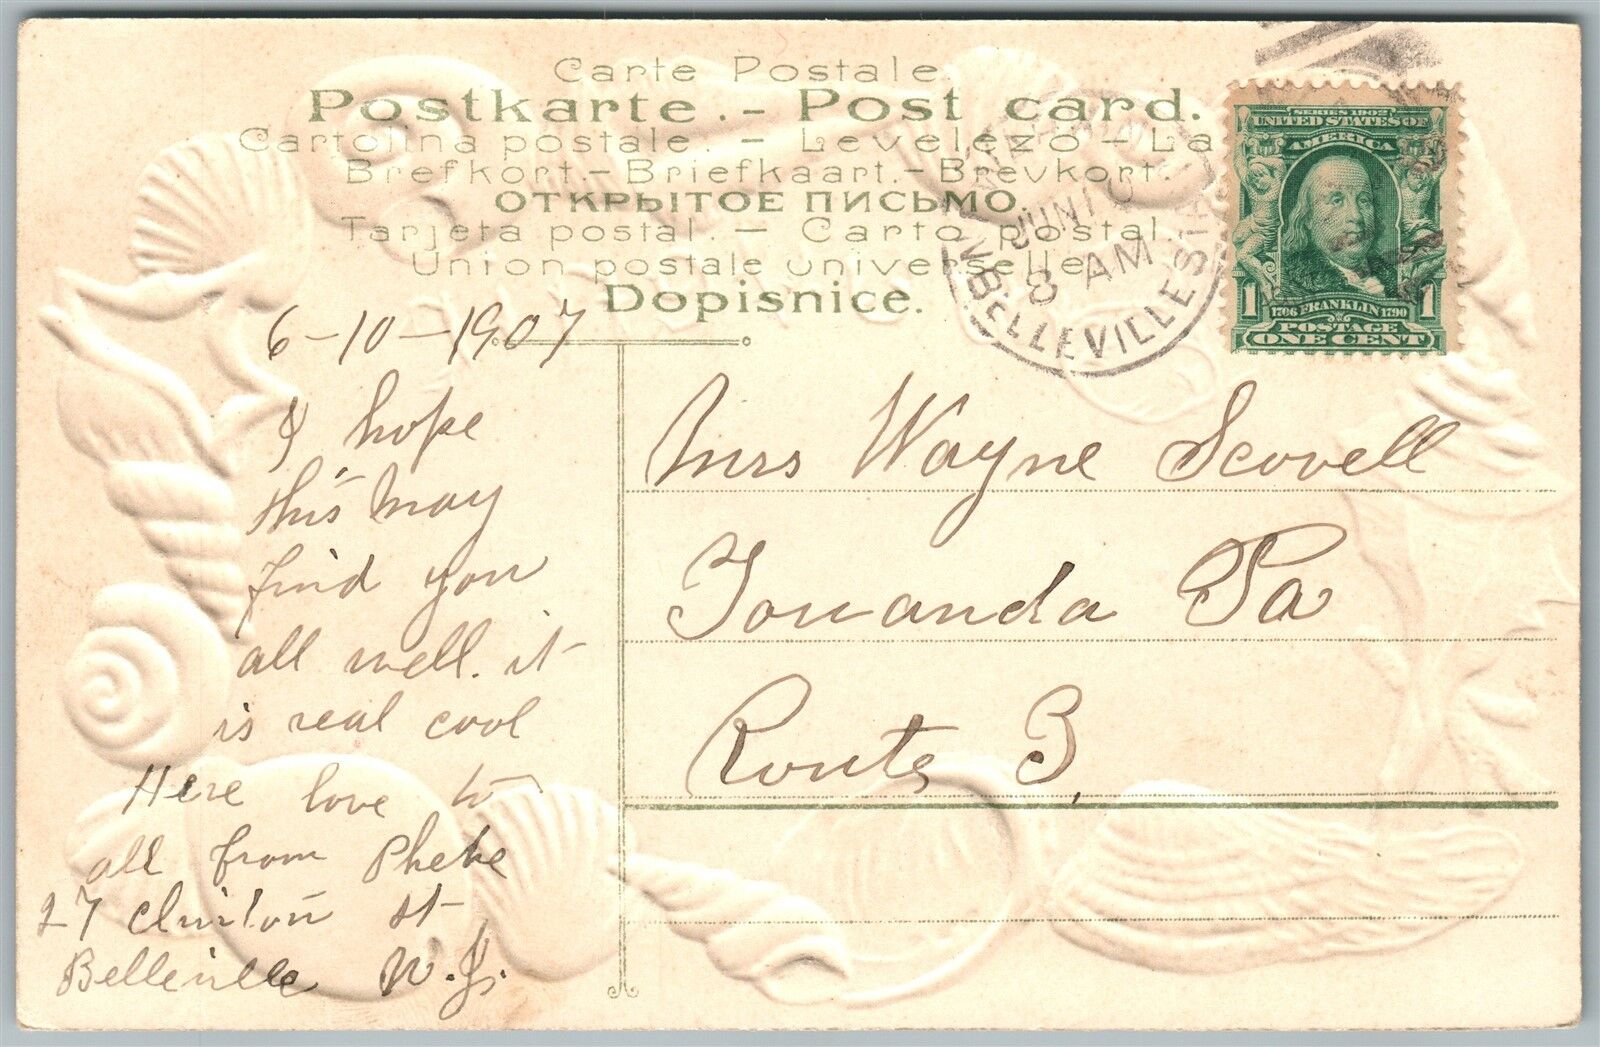 Carte Postale.
Postkarte.- Post card.
Cartolina postale. - Levelezo-La
Brefkort.-Briefkaart.-Brevkort.
ОТКРЫТОЕ ПИСЬМО.
Tarjeta postal. - Carto postal.
Union postale universelle
Dopisnice.
BELLEVILLE STA.
JUN 10
8 AM
SERIES 1902
UNITED STATES OF
AMERICA
1 1706 FRANKLIN 1790 1
POSTAGE
ONE CENT
6-10-1907
I hope
this may
find you
all well. it
is real cool
Here love to
all from Phebe
27 Clinton St
Belleville N.J.
Mrs Wayne Scovell
Towanda Pa
Route 3,